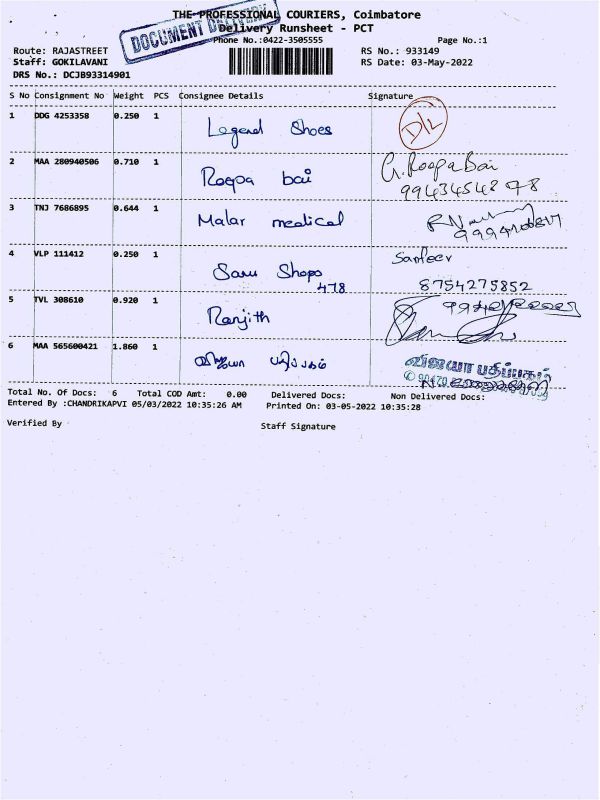 THE PROFESSIONAL COURIERS, Coimbatore
DOCUMENT DELIVERY
Delivery Runsheet - PCT
Phone No.:0422-3505555 Page No.:1
Route: RAJASTREET RS No.: 933149
Staff: GOKILAVANI RS Date: 03-May-2022
DRS No.: DCJB93314901
S No Consignment No Weight PCS Consignee Details Signature
1 DDG 4253358 0.250 1 Legend Shoes D/L
2 MAA 280940506 0.710 1 Roopa bai G. Roopa Bai
3 TNJ 7686895 0.644 1 Malar medical
4 VLP 111412 0.250 1 Saru Shops 478
8754275852
5 TVL 308610 0.920 1 Ranjith
6 MAA 565600421 1.860 1 விஜயா பதிப்பகம் விஜயா பதிப்பகம்
Total No. Of Docs: 6 Total COD Amt: 0.00 Delivered Docs: Non Delivered Docs:
Entered By :CHANDRIKAPVI 05/03/2022 10:35:26 AM Printed On: 03-05-2022 10:35:28
Verified By Staff Signature